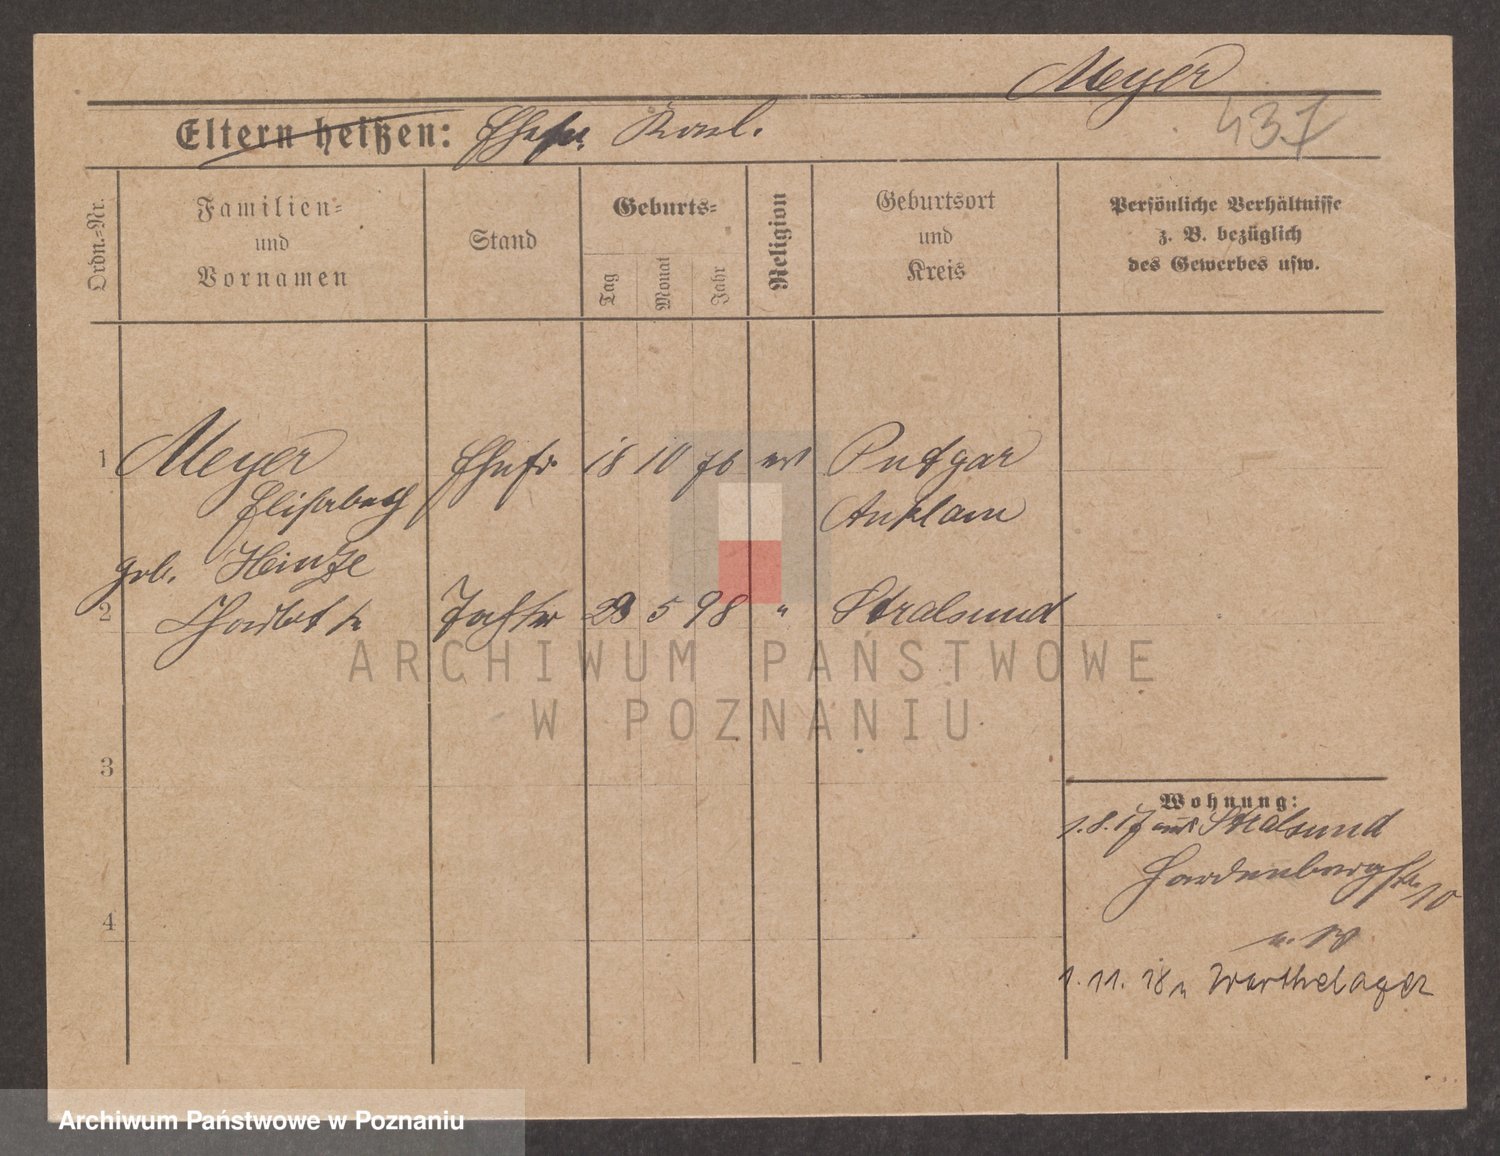 Meyer
437
Eltern heißen: Ehefr. Karl.
Ordn.-Nr.
Familien-
und
Vornamen
Stand
Geburts-
Tag
Monat
Jahr
Religion
Geburtsort
und
Kreis
Persönliche Verhältnisse
z. B. bezüglich
des Gewerbes usw.
1 Meyer Ehefr. 18 10 76 ev Putgar
Elisabeth Anklam
geb. Heintze
2 Tochter 29 5 98 " Stralsund
ARCHIWUM PAŃSTWOWE
W POZNANIU
3
4
Wohnung:
1.8.17 aus Stralsund
Hardenbergstr. 10
1.11.18 n Warthelager
Archiwum Państwowe w Poznaniu